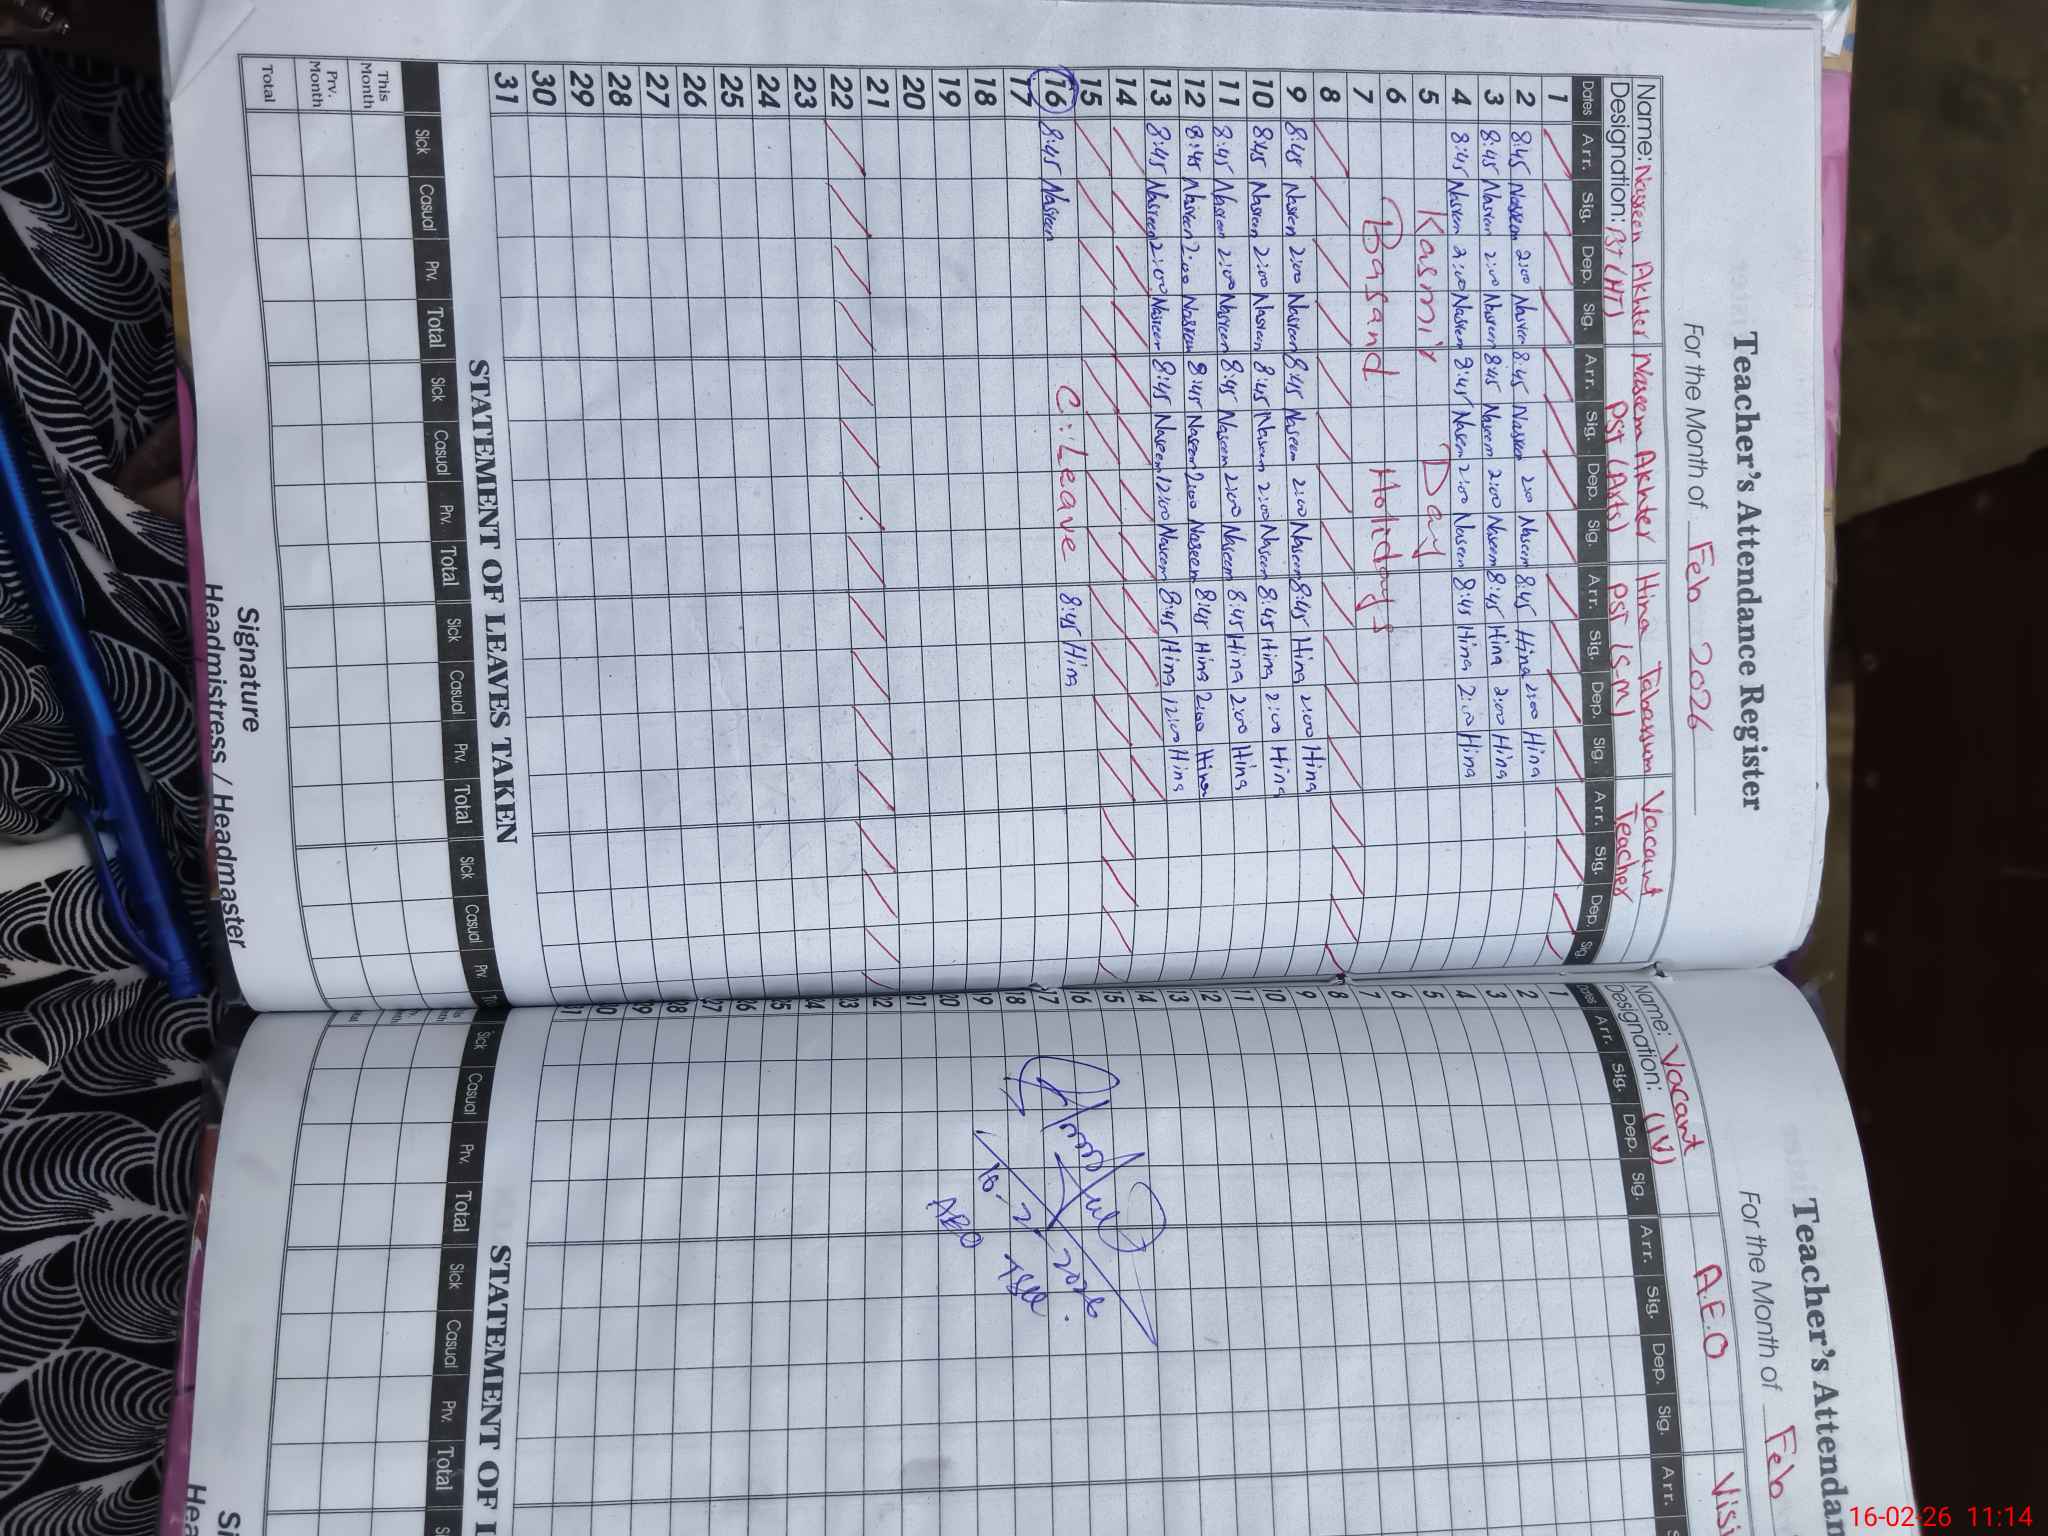 Teacher's Attendance Register
For the Month of Feb 2026
Name: Nasreen Akhter Naseem Akhter Hina Tabassum Vacant
Designation: PST (HT) PST (Arts) PST (S-M) Teacher
Dates Arr. Sig. Dep. Sig. Arr. Sig. Dep. Sig. Arr. Sig. Dep. Sig. Arr. Sig. Dep. Sig.
1
2 8:45 Nasreen 2:00 Nasreen 8:45 Naseem 2:00 Naseem 8:45 Hina 2:00 Hina
3 8:45 Nasreen 2:00 Nasreen 8:45 Naseem 2:00 Naseem 8:45 Hina 2:00 Hina
4 8:45 Nasreen 2:00 Nasreen 8:45 Naseem 2:00 Naseem 8:45 Hina 2:00 Hina
5 Kasmir Day
6 Basand Holidays
7
8
9 8:45 Nasreen 2:00 Nasreen 8:45 Naseem 2:00 Naseem 8:45 Hina 2:00 Hina
10 8:45 Nasreen 2:00 Nasreen 8:45 Naseem 2:00 Naseem 8:45 Hina 2:00 Hina
11 8:45 Nasreen 2:00 Nasreen 8:45 Naseem 2:00 Naseem 8:45 Hina 2:00 Hina
12 8:45 Nasreen 2:00 Nasreen 8:45 Naseem 2:00 Naseem 8:45 Hina 2:00 Hina
13 8:45 Nasreen 2:00 Nasreen 8:45 Naseem 12:00 Naseem 8:45 Hina 12:00 Hina
14
15
16 8:45 Nasreen C.Leave 8:45 Hina
17
18
19
20
21
22
23
24
25
26
27
28
29
30
31
STATEMENT OF LEAVES TAKEN
Sick Casual Prv. Total Sick Casual Prv. Total Sick Casual Prv. Total Sick Casual Prv.
This Month
Prv. Month
Total
Signature
Headmistress / Headmaster
Teacher's Attendan
For the Month of Feb
Name: Vacant A.E.O Visi
Designation: (IV)
Dates Arr. Sig. Dep. Sig. Arr. Sig. Dep. Sig. Arr.
1
2
3
4
5
6
7
8
9
10
11
12
13
14
15
16
17
18
19
20
21
22
23
24
25
26
27
28
29
30
31
16-2-2026
STATEMENT OF L
Sick Casual Prv. Total Sick Casual Prv. Total
Si
Hea
16-02-26 11:14